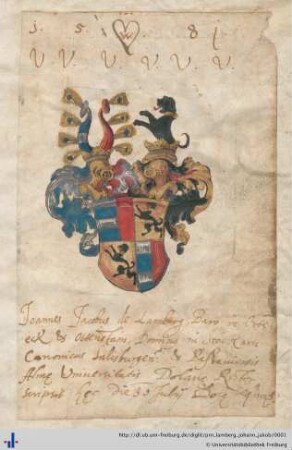 1 5 8 1
V. V. V. V. V. V.
Joannes Jacobus de Lamberg Baro in Orten
eck & Ottenstein, Dominus in Stock arn
Canonicus Salisburgen: & Passaviensis
Almæ Universitatis Dolanæ Rector
scripsit hec Die 30 Julij
http://dl.ub.uni-freiburg.de/diglit/arm_lamberg_johann_jakob/0001
© Universitätsbibliothek Freiburg